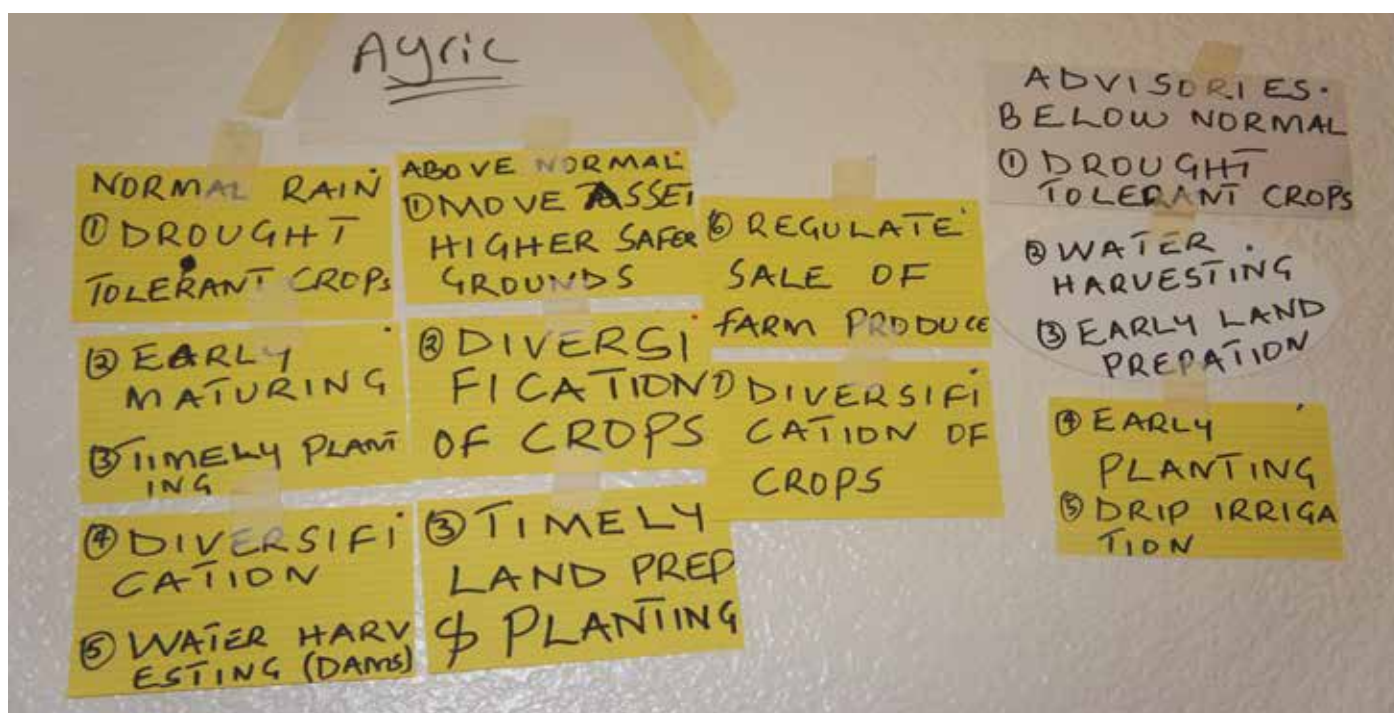 Agric
NORMAL RAIN
① DROUGHT
TOLERANT CROPS
② EARLY
MATURING
③ TIMELY PLANT
ING
④ DIVERSIFI
CATION
⑤ WATER HARV
ESTING (DAMS)
ABOVE NORMAL
① MOVE ASSET
HIGHER SAFER
GROUNDS
② DIVERSI
FICATION
OF CROPS
③ TIMELY
LAND PREP
$ PLANTING
⑥ REGULATE
SALE OF
FARM PRODUCE
⑦ DIVERSIFI
CATION OF
CROPS
ADVISORIES.
BELOW NORMAL
① DROUGHT
TOLERANT CROPS
② WATER.
HARVESTING
③ EARLY LAND
PREPATION
④ EARLY
PLANTING
⑤ DRIP IRRIGA
TION